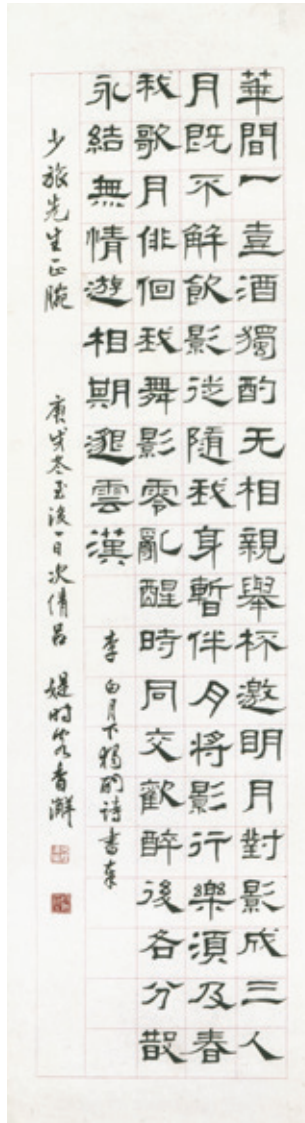 華間一壺酒獨酌无相親舉杯邀明月對影成三人
月既不解飲影徒隨我身暫伴月將影行樂須及春
我歌月徘徊我舞影零亂醒時同交歡醉後各分散
永結無情遊相期邈雲漢 李白月下獨酌詩書奉
少旅先生正腕 庚戌冬至後一日次倩呂媞時客香澥